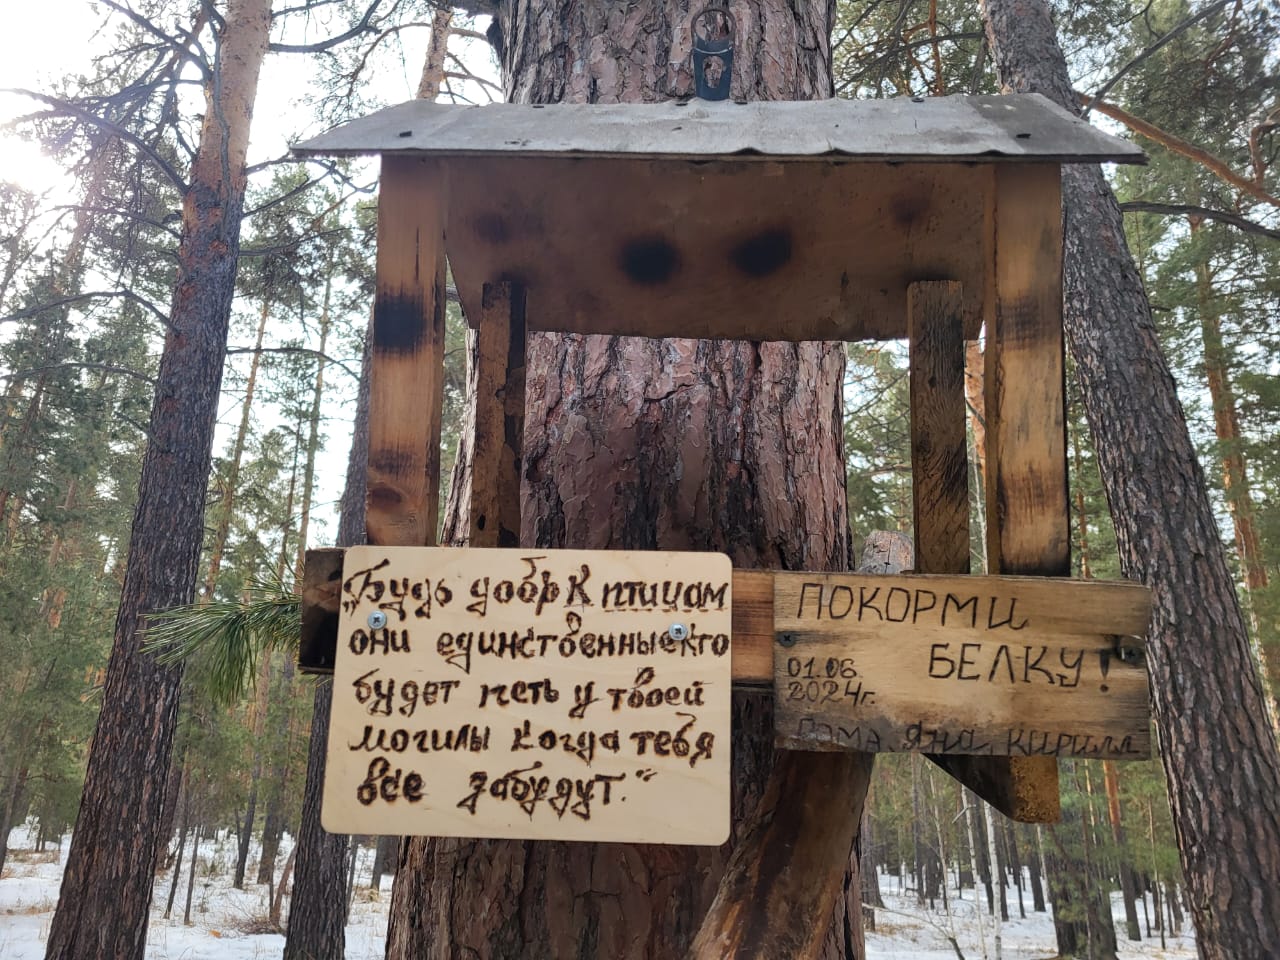 „Будь добр к птицам
они единственные кто
будет петь у твоей
могилы когда тебя
все забудут.“
ПОКОРМИ
БЕЛКУ!
01.06.
2024г.
Яна, Кирилл